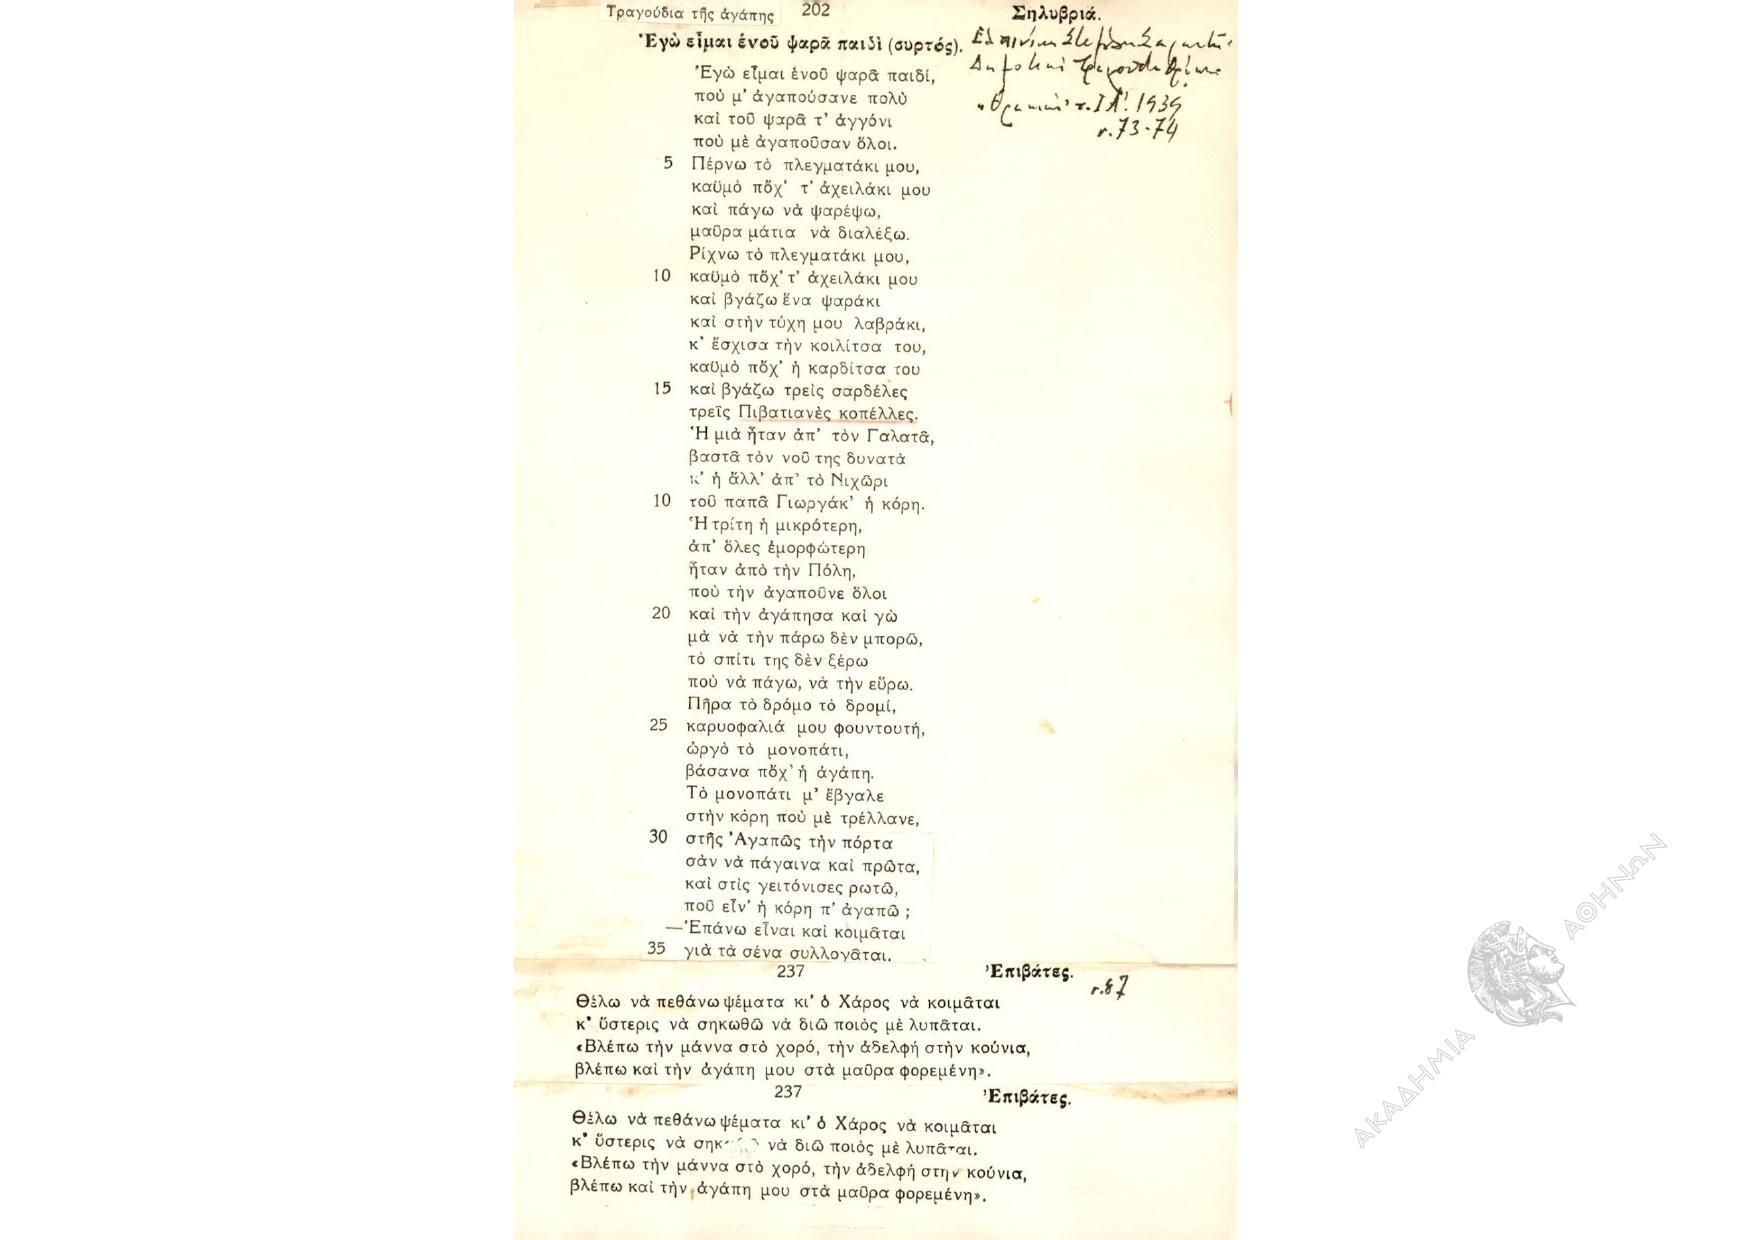 Τραγούδια τῆς ἀγάπης 202 Σηλυβριά.
Ἐγὼ εἶμαι ἑνοῦ ψαρᾶ παιδὶ (συρτός).
Ἐγὼ εἶμαι ἑνοῦ ψαρᾶ παιδί,
ποὺ μ' ἀγαπούσανε πολὺ
καὶ τοῦ ψαρᾶ τ' ἀγγόνι
ποὺ μὲ ἀγαποῦσαν ὅλοι.
5 Πέρνω τὸ πλεγματάκι μου,
καϋμὸ πὄχ' τ' ἀχειλάκι μου
καὶ πάγω νὰ ψαρέψω,
μαῦρα μάτια νὰ διαλέξω.
Ρίχνω τὸ πλεγματάκι μου,
10 καϋμὸ πὄχ' τ' ἀχειλάκι μου
καὶ βγάζω ἕνα ψαράκι
καὶ στὴν τύχη μου λαβράκι,
κ' ἔσχισα τὴν κοιλίτσα του,
καϋμὸ πὄχ' ἡ καρδίτσα του
15 καὶ βγάζω τρεὶς σαρδέλες
τρεῖς Πιβατιανὲς κοπέλλες.
Ἡ μιὰ ἦταν ἀπ' τὸν Γαλατᾶ,
βαστᾶ τὸν νοῦ της δυνατὰ
κ' ἡ ἄλλ' ἀπ' τὸ Νιχῶρι
10 τοῦ παπᾶ Γιωργάκ' ἡ κόρη.
Ἡ τρίτη ἡ μικρότερη,
ἀπ' ὅλες ἐμορφώτερη
ἦταν ἀπὸ τὴν Πόλη,
ποὺ τὴν ἀγαποῦνε ὅλοι
20 καὶ τὴν ἀγάπησα καὶ γὼ
μὰ νὰ τὴν πάρω δὲν μπορῶ,
τὸ σπίτι της δὲν ξέρω
ποὺ νὰ πάγω, νὰ τὴν εὕρω.
Πῆρα τὸ δρόμο τὸ δρομί,
25 καρυοφαλιά μου φουντουτή,
ὡργὸ τὸ μονοπάτι,
βάσανα πὄχ' ἡ ἀγάπη.
Τὸ μονοπάτι μ' ἔβγαλε
στὴν κόρη ποὺ μὲ τρέλλανε,
30 στῆς Ἀγαπῶς τὴν πόρτα
σὰν νὰ πάγαινα καὶ πρῶτα,
καὶ στὶς γειτόνισες ρωτῶ,
ποῦ εἶν' ἡ κόρη π' ἀγαπῶ ;
—Ἐπάνω εἶναι καὶ κοιμᾶται
35 γιὰ τὰ σένα συλλογᾶται.
τ. ΙΑ'. 1939
σ. 73-74
237 Ἐπιβάτες.
σ. 87
Θέλω νὰ πεθάνω ψέματα κι' ὁ Χάρος νὰ κοιμᾶται
κ' ὕστερις νὰ σηκωθῶ νὰ διῶ ποιὸς μὲ λυπᾶται.
«Βλέπω τὴν μάννα στὸ χορό, τὴν ἀδελφή στὴν κούνια,
βλέπω καὶ τὴν ἀγάπη μου στὰ μαῦρα φορεμένη».
237 Ἐπιβάτες.
Θέλω νὰ πεθάνω ψέματα κι' ὁ Χάρος νὰ κοιμᾶται
κ' ὕστερις νὰ νὰ διῶ ποιὸς μὲ λυπᾶται.
«Βλέπω τὴν μάννα στὸ χορό, τὴν ἀδελφή στην κούνια,
βλέπω καὶ τὴν ἀγάπη μου στὰ μαῦρα φορεμένη».
ΑΚΑΔΗΜΙΑ ΑΘΗΝΩΝ